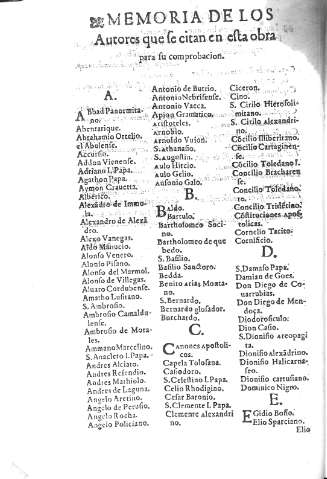 MEMORIA DE LOS
Autores que se citan en esta obra
para su comprobacion.
A.
ABbad Panormita-
no.
Abentarique.
Abrahamio Ortelio,
el Abulense.
Accursio.
Addon Vienense.
Adriano I. Papa.
Agathon Papa.
Aymon Crauetta.
Alberico.
Alexádro de Immo-
la.
Alexandro de Alexá
dro.
Alexo Vanegas.
Aldo Manucio.
Alonso Venero.
Alonso Pisano.
Alonso del Marmol.
Alonso de Villegas.
Aluaro Cordubense.
Amatho Lusitano.
S. Ambrosio.
Ambrosio Camaldu-
lense.
Ambrosio de Mora-
les.
Ammano Marcelino.
S. Anacleto I. Papa.
Andres Alciato.
Andres Resendio.
Andres Mathiolo.
Andres de Laguna.
Angelo Aretino.
Angelo de Perosio.
Angelo Rocha.
Angelo Policiano.
Antonio de Butrio.
Antonio Nebrisense.
Antonio Vacca.
Apion Gramatico.
Aristoteles.
Arnobio.
Arnoldo Vuion.
S. Athanasio.
S. Augustin.
Aulo Hircio.
Aulo Gelio.
Antonio Galo.
B.
BAldo.
Bartulo.
Bartholomeo Soci-
no.
Bartholomeo de que
bedo.
S. Basilio.
Basilio Sanctoro.
Bedda.
Benito Arias Monta-
no.
S. Bernardo.
Bernardo glosador.
Borchardo.
C.
CAnones Apostoli-
cos.
Capela Tolosana.
Casiodoro.
S. Celestino I. Papa.
Celin Rhodigino.
Cesar Baronio.
S. Clemente I. Papa.
Clemente alexandri
no.
Ciceron.
Cino.
S. Cirilo Hierosoli-
mitano.
S. Cirilo alexandri-
no.
Cōcilio Illiberitano.
Cōcilio Cartaginen-
se.
Cōcilio Toledano I.
Concilio Bracharen
se.
Concilio Toledano.
Concilio Tridētino.
Cōstituciones Apos
tolicas.
Cornelio Tacito.
Cornificio.
D.
S. Damaso Papa.
Damian de Goes.
Don Diego de Co-
uarrubias.
Don Diego de Men-
doça.
Diodoro siculo.
Dion Casio.
S. Dionisio Areopa-
gita.
Dionisio Alexádrino.
Dionisio Halicarna-
seo.
Dionisio cartusiano.
Dominico Nigro.
E.
EGidio Bosio.
Elio Sparciano.
Elio